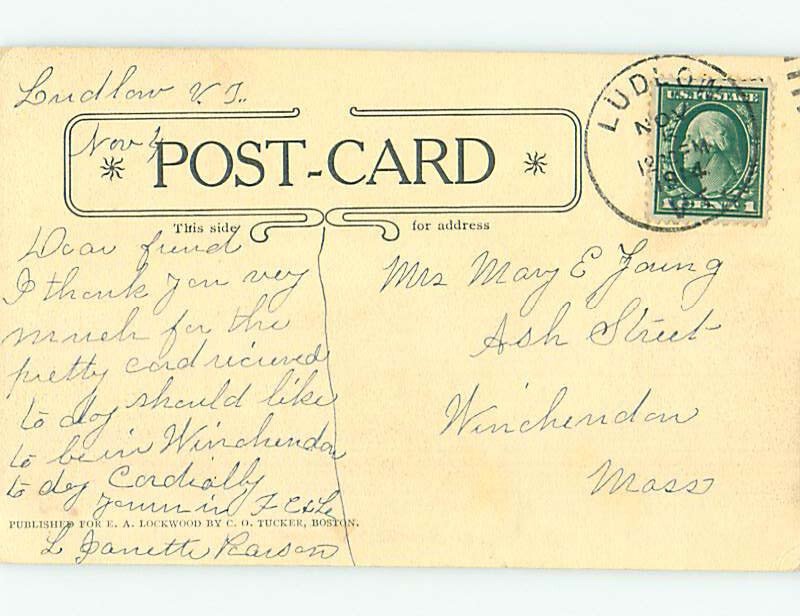 Ludlow V.T.
Nov 4
POST-CARD
This side for address
Dear friend
I thank you very
much for the
pretty card recieved
to day should like
to be in Winchendon
to day Cordially
Yours in F C & L
L Janette Pearson
PUBLISHED FOR E. A. LOCKWOOD BY C. O. TUCKER, BOSTON.
Mrs Mary E Young
Ash Street
Winchendon
Mass
LUDLOW
NOV
U.S. POSTAGE
1 CENT 1